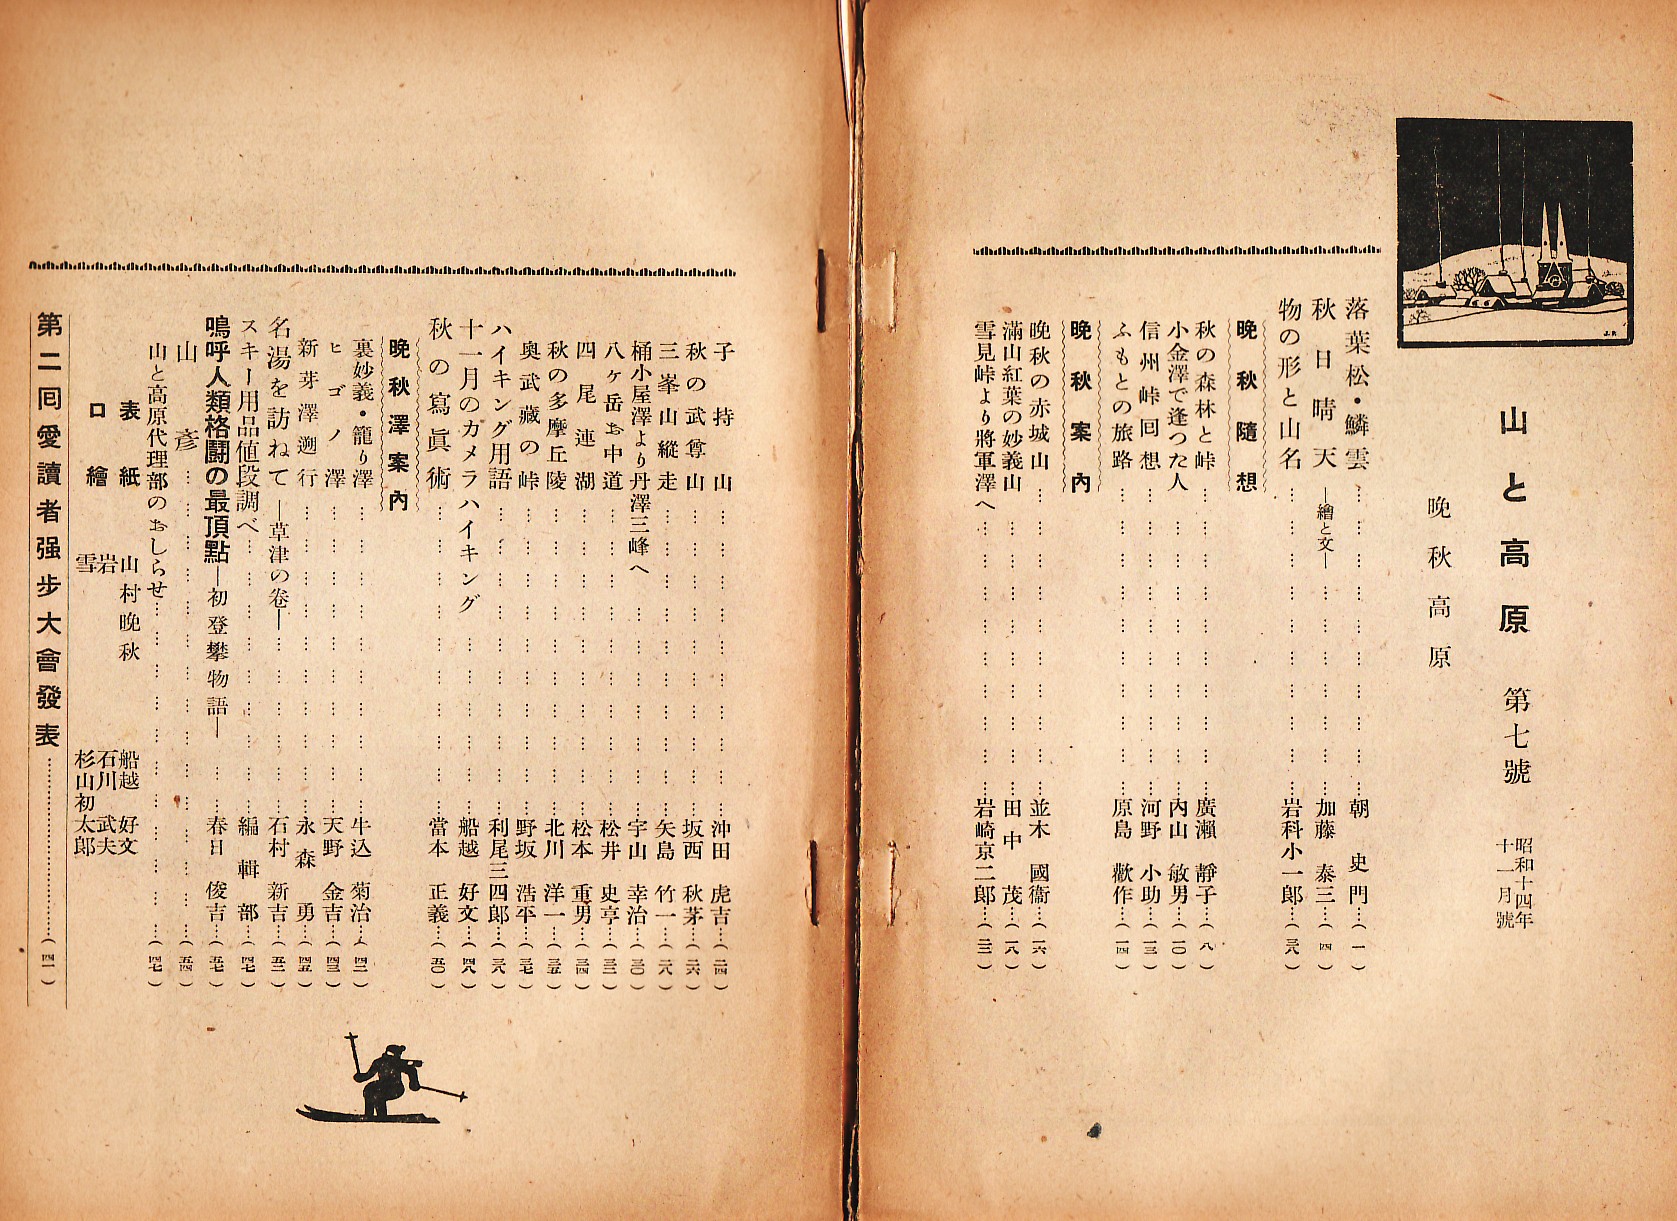 山と高原　第七號　昭和十四年十一月號
晩秋高原
落葉松・鱗雲……朝史門…(一)
秋日晴天―繪と文―……加藤泰三…(四)
物の形と山名……岩科小一郎…(三八)
晩秋隨想
秋の森林と峠……廣瀨靜子…(八)
小金澤で逢つた人……內山敏男…(一〇)
信州峠回想……河野小助…(一三)
ふもとの旅路……原島歡作…(一四)
晩秋案內
晩秋の赤城山……並木國衞…(一六)
滿山紅葉の妙義山……田中茂…(一八)
雪見峠より將軍澤へ……岩崎京二郎…(二二)
子持山……沖田虎吉…(二四)
秋の武尊山……坂西秋芽…(二六)
三峯山縱走……矢島竹一…(二八)
桶小屋澤より丹澤三峰へ……宇山幸治…(三〇)
八ヶ岳お中道……松井史亨…(三二)
四尾連湖……松本重男…(三四)
秋の多摩丘陵……北川洋一…(三五)
奥武藏の峠……野坂浩平…(三七)
ハイキング用語……利尾三四郎…(三八)
十一月のカメラハイキング……船越好文…(四八)
秋の寫眞術……當本正義…(五〇)
晩秋澤案內
裏妙義・籠り澤……牛込菊治…(四二)
ヒゴノ澤……天野金吉…(四三)
新芽澤遡行……永森勇…(四五)
名湯を訪ねて―草津の卷―……石村新吉…(五二)
スキー用品値段調べ……編輯部…(四七)
嗚呼人類格鬪の最頂點―初登攀物語―……春日俊吉…(五七)
山彥……(五四)
山と高原代理部のおしらせ……(四七)
表紙　山村晩秋　船越好文
口繪　岩　石川武夫
雪　杉山初太郎
第二回愛讀者强步大會發表……(四一)